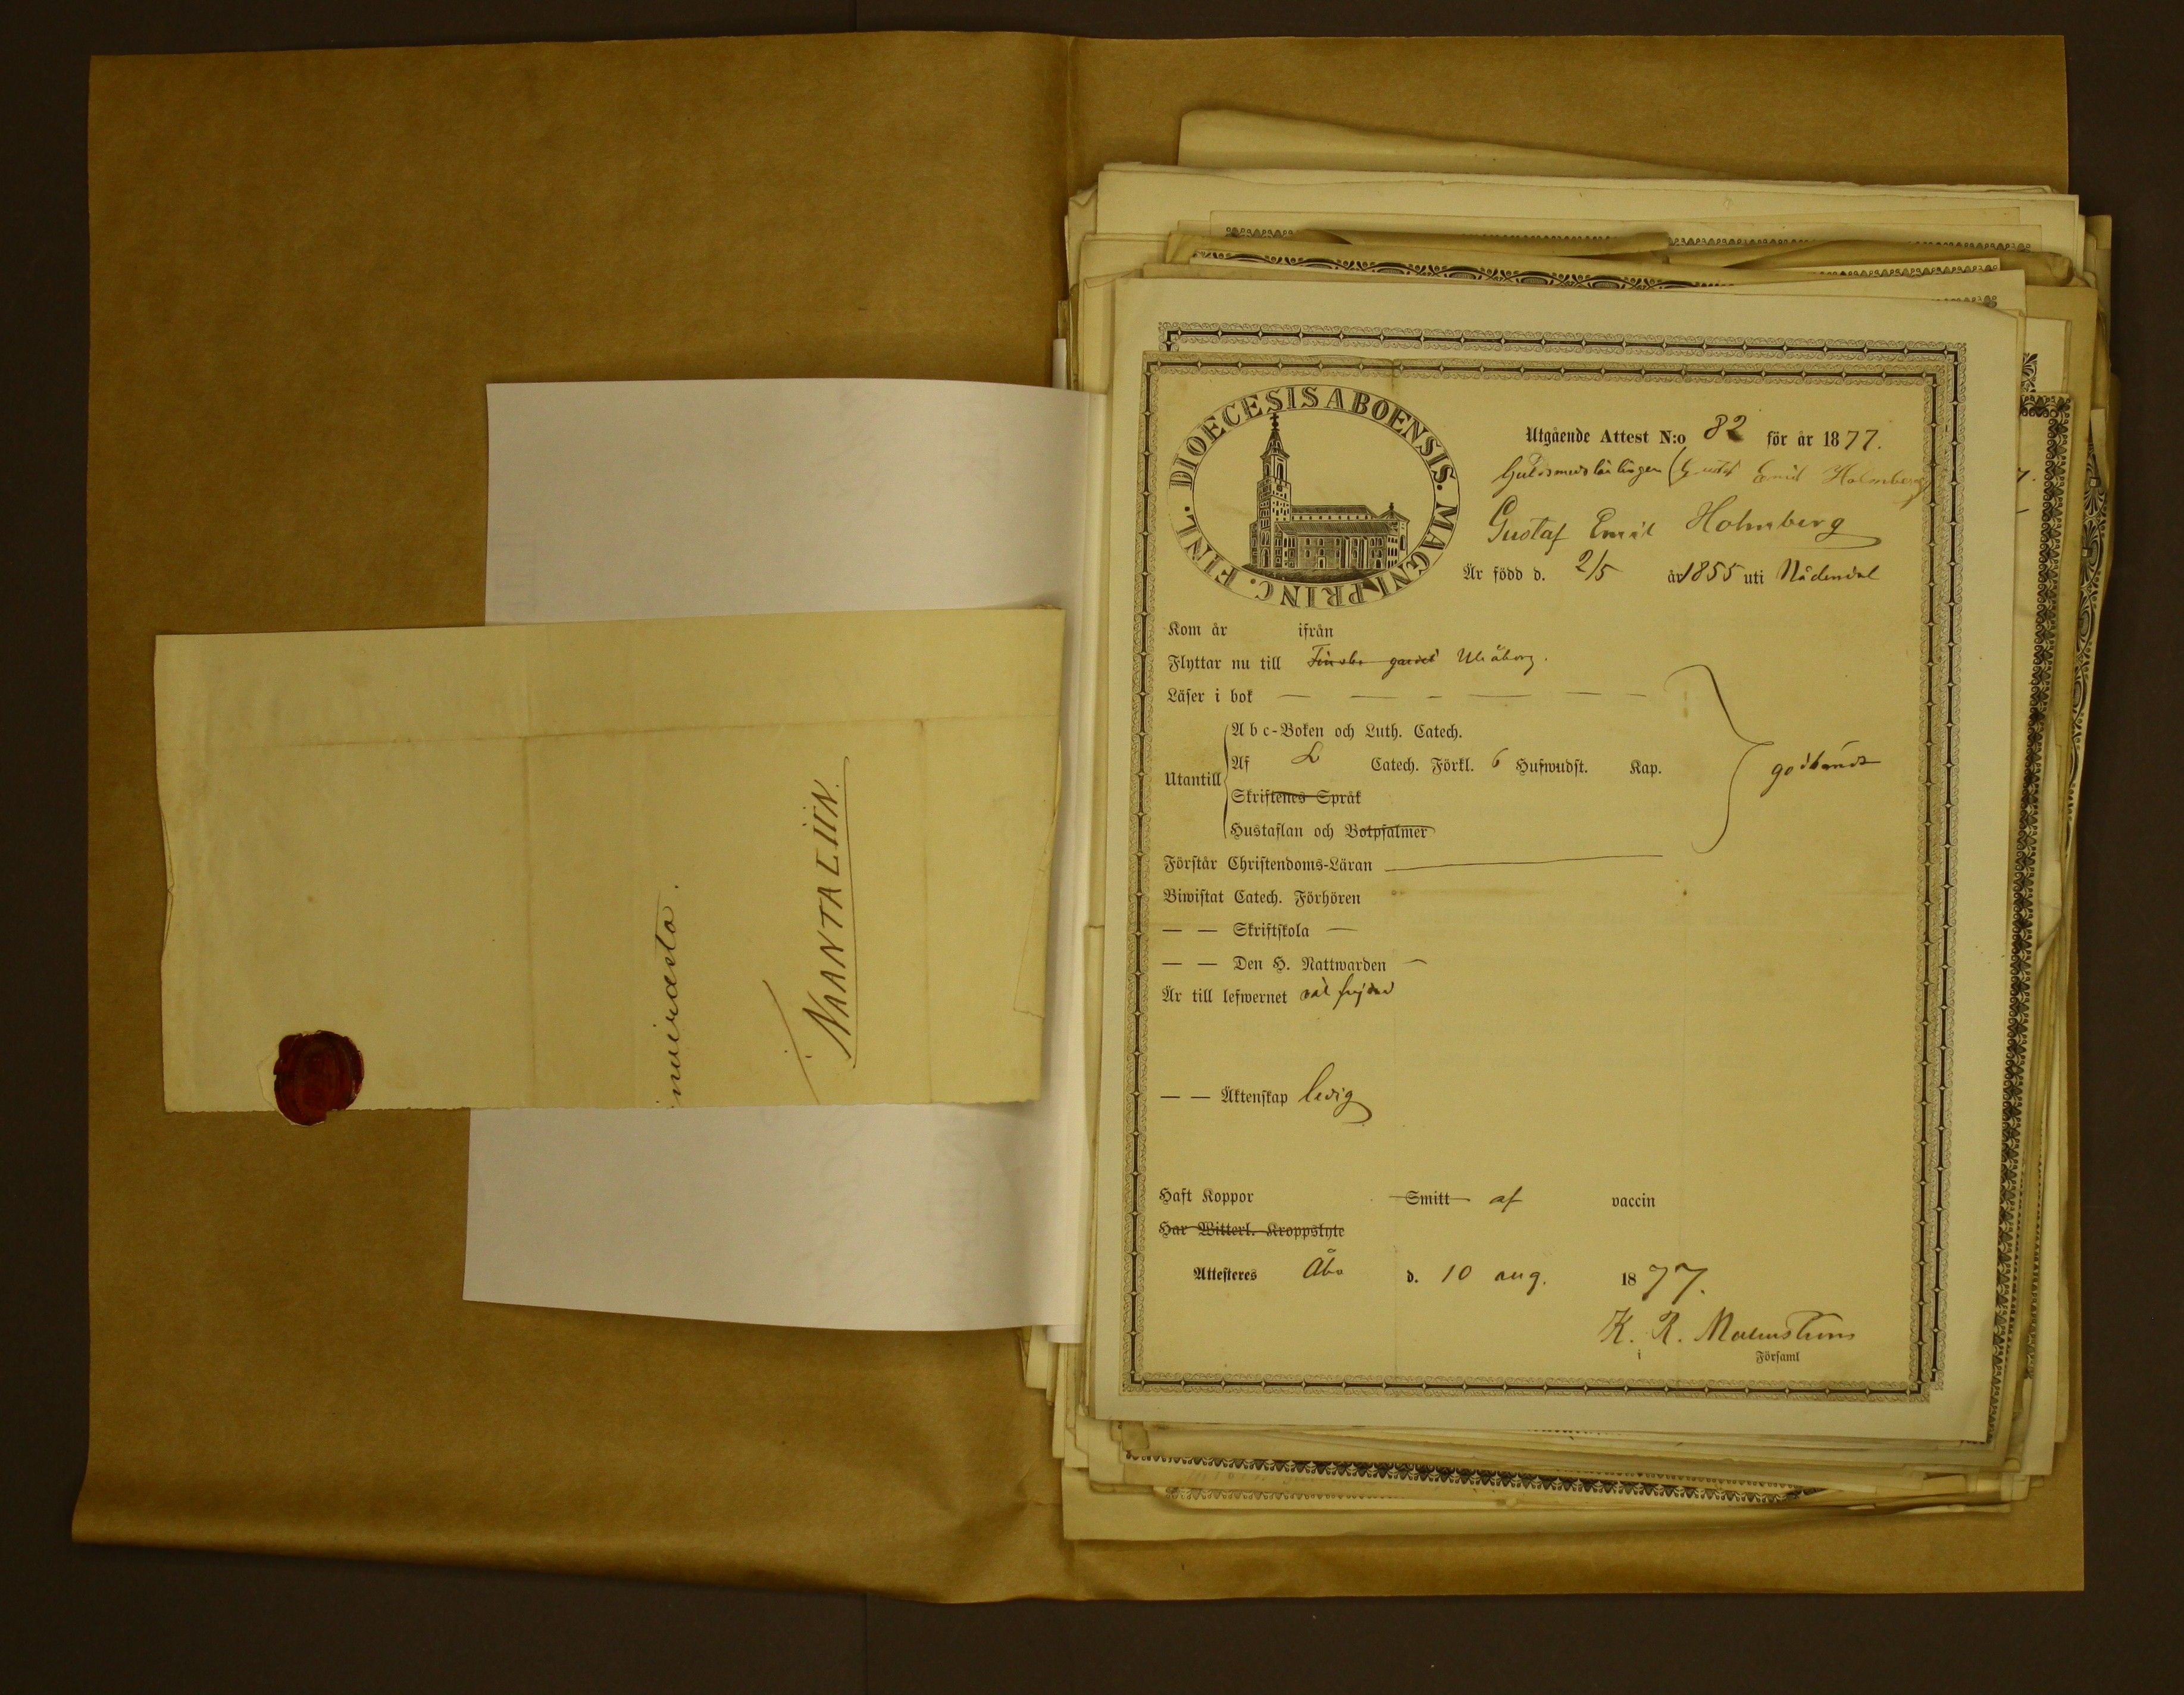 nuirasta.
NAANTALIIN.
DIOECESIS ABOENSIS. MAGNI PRINC. FINL.
Utgående Attest N:o 82 för år 1877.
Guldsmedslärlingen (Gustaf Emil Holmberg)
Gustaf Emil Holmberg
Är född d. 2/5 år 1855 uti Nådendal
Kom år ifrån
Flyttar nu till Finska gardet Uleåborg.
Läser i bok — — — — — —
Utantill
A b c-Boken och Luth. Catech.
Af L Catech. Förkl. 6 Hufwudst. Kap.
Skriftenes Språk
Hustaflan och Botpsalmer
godkändt
Förstår Christendoms-Läran —
Biwistat Catech. Förhören
— — Skriftskola —
— — Den H. Nattwarden —
Är till lefwernet väl frejdad
— — Äktenskap ledig
Haft Koppor Smitt af vaccin
Har Witterl. Kroppslyte
Attesteres Åbo d. 10 aug. 1877.
K. R. Malmström
i Församl